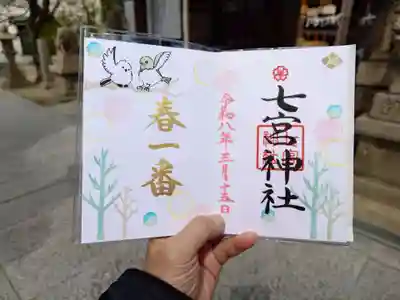 七宮神社
令和八年三月十五日
春一番